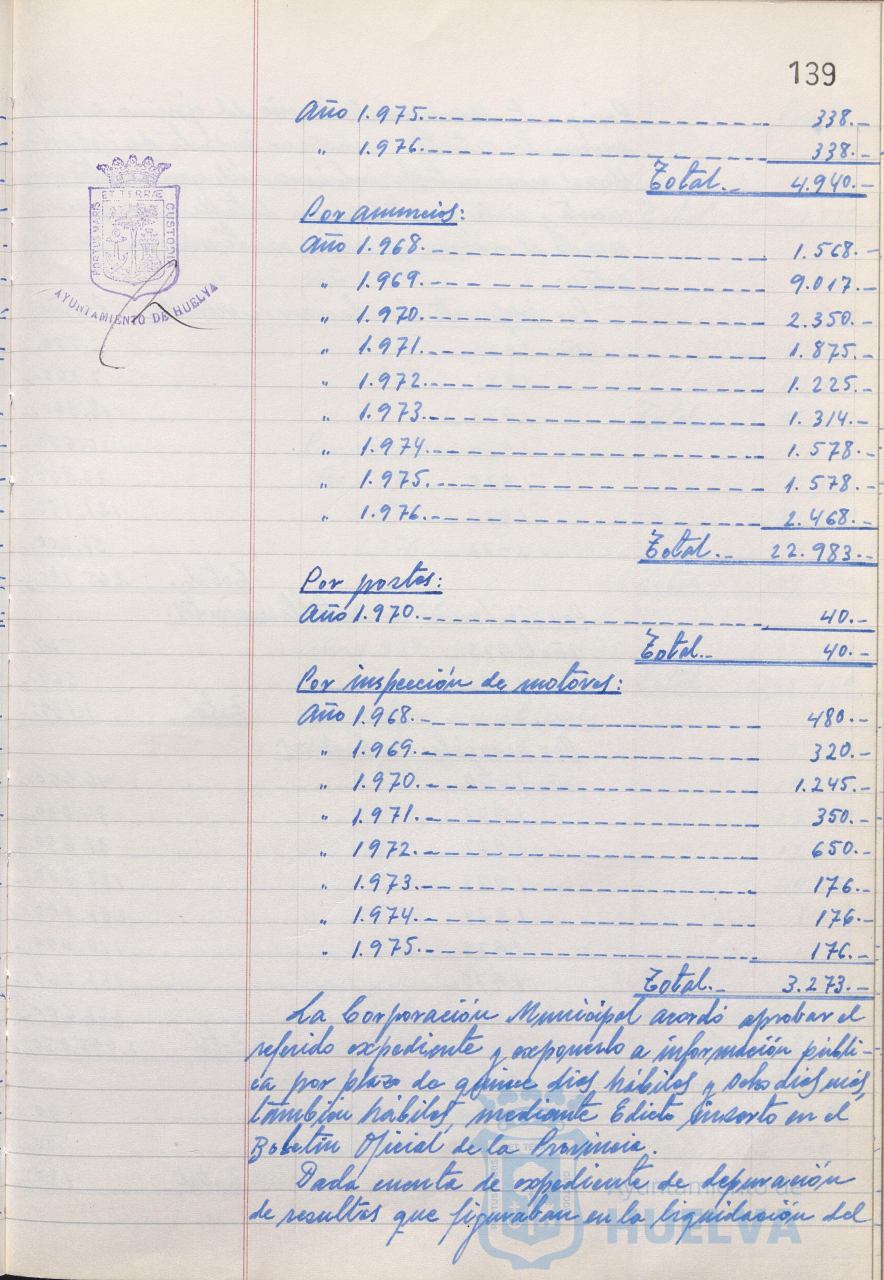 139
Año 1.975.- 338.-
" 1.976.- 338.-
Total.- 4.940.-
Por anuncios:
Año 1.968.- 1.568.-
" 1.969.- 9.017.-
" 1.970.- 2.350.-
" 1.971.- 1.875.-
" 1.972.- 1.225.-
" 1.973.- 1.314.-
" 1.974.- 1.578.-
" 1.975.- 1.578.-
" 1.976.- 2.468.-
Total.- 22.983.-
Por postes:
Año 1.970.- 40.-
Total.- 40.-
Por inspección de motores:
Año 1.968.- 480.-
" 1.969.- 320.-
" 1.970.- 1.245.-
" 1.971.- 350.-
" 1972.- 650.-
" 1.973.- 176.-
" 1.974.- 176.-
" 1.975.- 176.-
Total.- 3.273.-
La Corporación Municipal acordó aprobar el
referido expediente y exponerlo a información públi-
ca por plazo de quince dias hábiles y ocho dias más,
tambien hábiles, mediante Edicto inserto en el
Boletín Oficial de la Provincia.
Dada cuenta de expediente de depuración
de resultas que figuraban en la liquidación del
PORTUS MARIS ET TERRÆ CUSTODIA
AYUNTAMIENTO DE HUELVA
Ayuntamiento de
HUELVA